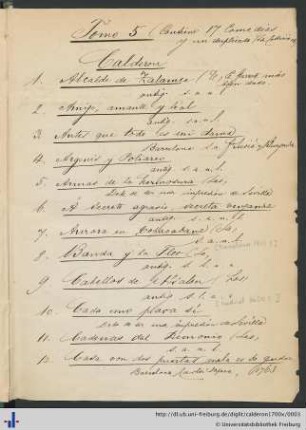 Tomo 5 (Contiene 17 Comedias
y un duplicado
Calderon
1. Alcalde de Zalamea (El,
antig. s. a. l.
2. Amigo, amante y leal
antig. s. a. l.
3. Antes que todo es mi dama
Barcelona
4. Argenis y Poliarco
antig. s. a. l.
5. Armas de la hermosura (Las,
impresion de Sevilla
6. A secreto agravio secreta venganza
antig. s. a. l.
7. Aurora en Copacabana (La,
s. a. l.
8. Banda y la Flor (La,
antig. s. l. a.
9. Cabellos de Absalon (Los
antig. s. l. a.
10. Cada uno para si
impresion de Sevilla
11. Cadenas del Demonio (Las,
s. a. l.
12. Casa con dos puertas mala es de guardar
Barcelona, 1763
http://dl.ub.uni-freiburg.de/diglit/calderon1700v/0003
© Universitätsbibliothek Freiburg